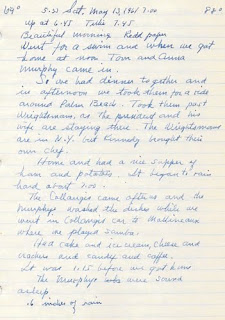 64° 5-22 Sat. May 13, 1961 7.00 P80°
up at 6.45 Tide 7.45
Beautiful morning Read paper
Went for a swim and when we got
home at noon Tom and Anna
Murphy came in.
So we had dinner together and
in afternoon we took them for a ride
around Palm Beach. Took them past
Wrightsman, as the president and his
wife are staying there. The Wrightsmans
are in N.Y. but Kennedy brought their
own Chef.
Home and had a nice supper of
ham and potatoes. It began to rain
hard about 7.00.
The came after us and the
Murphys washed the dishes while we
went in car to
where we played Samba.
Had cake and ice cream, cheese and
crackers and candy and coffee.
It was 11.15 before we got home
The Murphys were sound
asleep.
.6 inches of rain